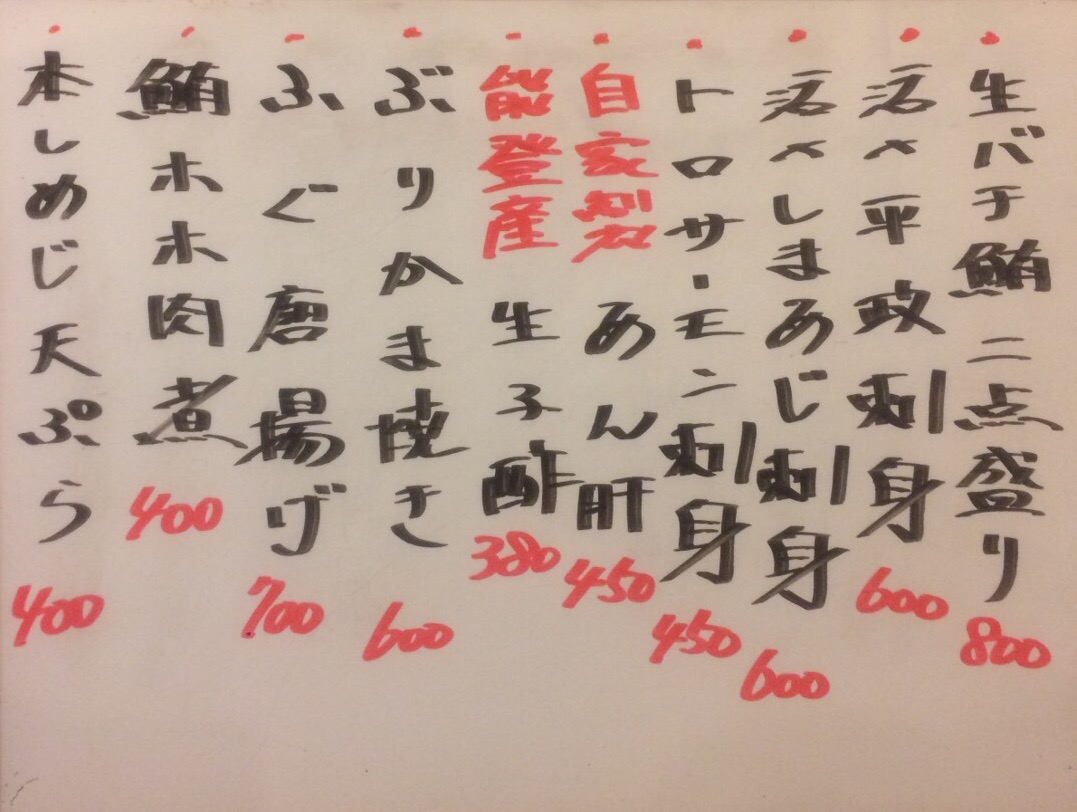 ・生バチ鮪二点盛り 800
・活〆平政刺身 600
・活〆しまあじ刺身 600
・トロサーモン刺身 450
・自家製 あん肝 450
・能登産 生子酢 380
・ぶりかま焼き 600
・ふぐ唐揚げ 700
・鮪ホホ肉煮 400
・本しめじ天ぷら 400